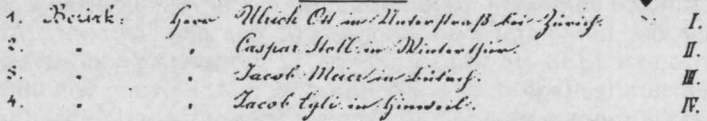 1. Bezirk: Herr Ulrich Ott in Unterstraß bei Zürich. I.
2. " " Caspar Stoll in Winterthur. II.
3. " " Jacob Meier in Bülach. III.
4. " " Jacob Egli in Hinweil. IV.